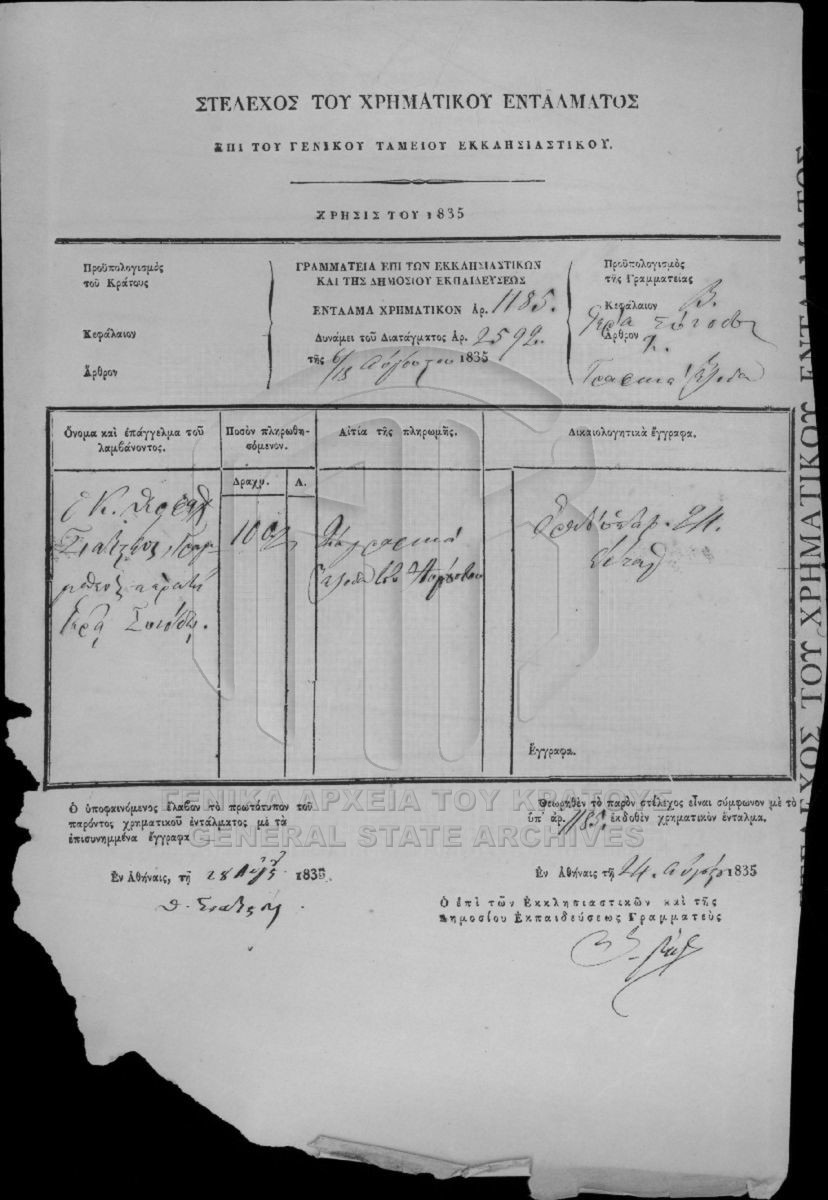 ΣΤΕΛΕΧΟΣ ΤΟΥ ΧΡΗΜΑΤΙΚΟΥ ΕΝΤΑΛΜΑΤΟΣ
ΕΠΙ ΤΟΥ ΓΕΝΙΚΟΥ ΤΑΜΕΙΟΥ ΕΚΚΛΗΣΙΑΣΤΙΚΟΥ.
ΧΡΗΣΙΣ ΤΟΥ 1835
Προϋπολογισμὸς
τοῦ Κράτους
Κεφάλαιον
Ἄρθρον
ΓΡΑΜΜΑΤΕΙΑ ΕΠΙ ΤΩΝ ΕΚΚΛΗΣΙΑΣΤΙΚΩΝ
ΚΑΙ ΤΗΣ ΔΗΜΟΣΙΟΥ ΕΚΠΑΙΔΕΥΣΕΩΣ
ΕΝΤΑΛΜΑ ΧΡΗΜΑΤΙΚΟΝ ἀρ. 1185.
Δυνάμει τοῦ Διατάγματος ἀρ. 2592.
τῆς 6/18 Αὐγούστου 1835
Προϋπολογισμὸς
τῆς Γραμματείας
Κεφάλαιον Β.
Ἱερὰ Σύνοδος
Ἄρθρον
2.
Γραφικὰ ἔξοδα
Ὄνομα καὶ ἐπάγγελμα τοῦ
λαμβάνοντος.
Ποσὸν πληρωθη-
σόμενον.
Αἰτία τῆς πληρωμῆς.
Δικαιολογητικὰ ἔγγραφα.
Δραχμ.
Λ.
ὁ Κ.
100
Γραφικὰ
ἔξοδα τοῦ Αὐγούστου
Ἱερᾷ Συνόδῳ.
24.
Ἔγγραφα.
Ὁ ὑποφαινόμενος ἔλαβον τὸ πρωτότυπον τοῦ
παρόντος χρηματικοῦ ἐντάλματος μὲ τὰ
ἐπισυνημμένα ἔγγραφα
Ἐν Ἀθήναις, τῇ 28 Αὐγ. 1835
Θεωρηθὲν τὸ παρὸν στέλεχος εἶναι σύμφωνον μὲ τὸ
ὑπ' ἀρ. 1185. ἐκδοθὲν χρηματικὸν ἔνταλμα.
Ἐν Ἀθήναις τῇ 24. Αὐγούστ. 1835
Ὁ ἐπὶ τῶν Ἐκκλησιαστικῶν καὶ τῆς
Δημοσίου Ἐκπαιδεύσεως Γραμματεὺς
ΣΤΕΛΕΧΟΣ ΤΟΥ ΧΡΗΜΑΤΙΚΟΥ ΕΝΤΑΛΜΑΤΟΣ
ΓΕΝΙΚΑ ΑΡΧΕΙΑ ΤΟΥ ΚΡΑΤΟΥΣ
GENERAL STATE ARCHIVES